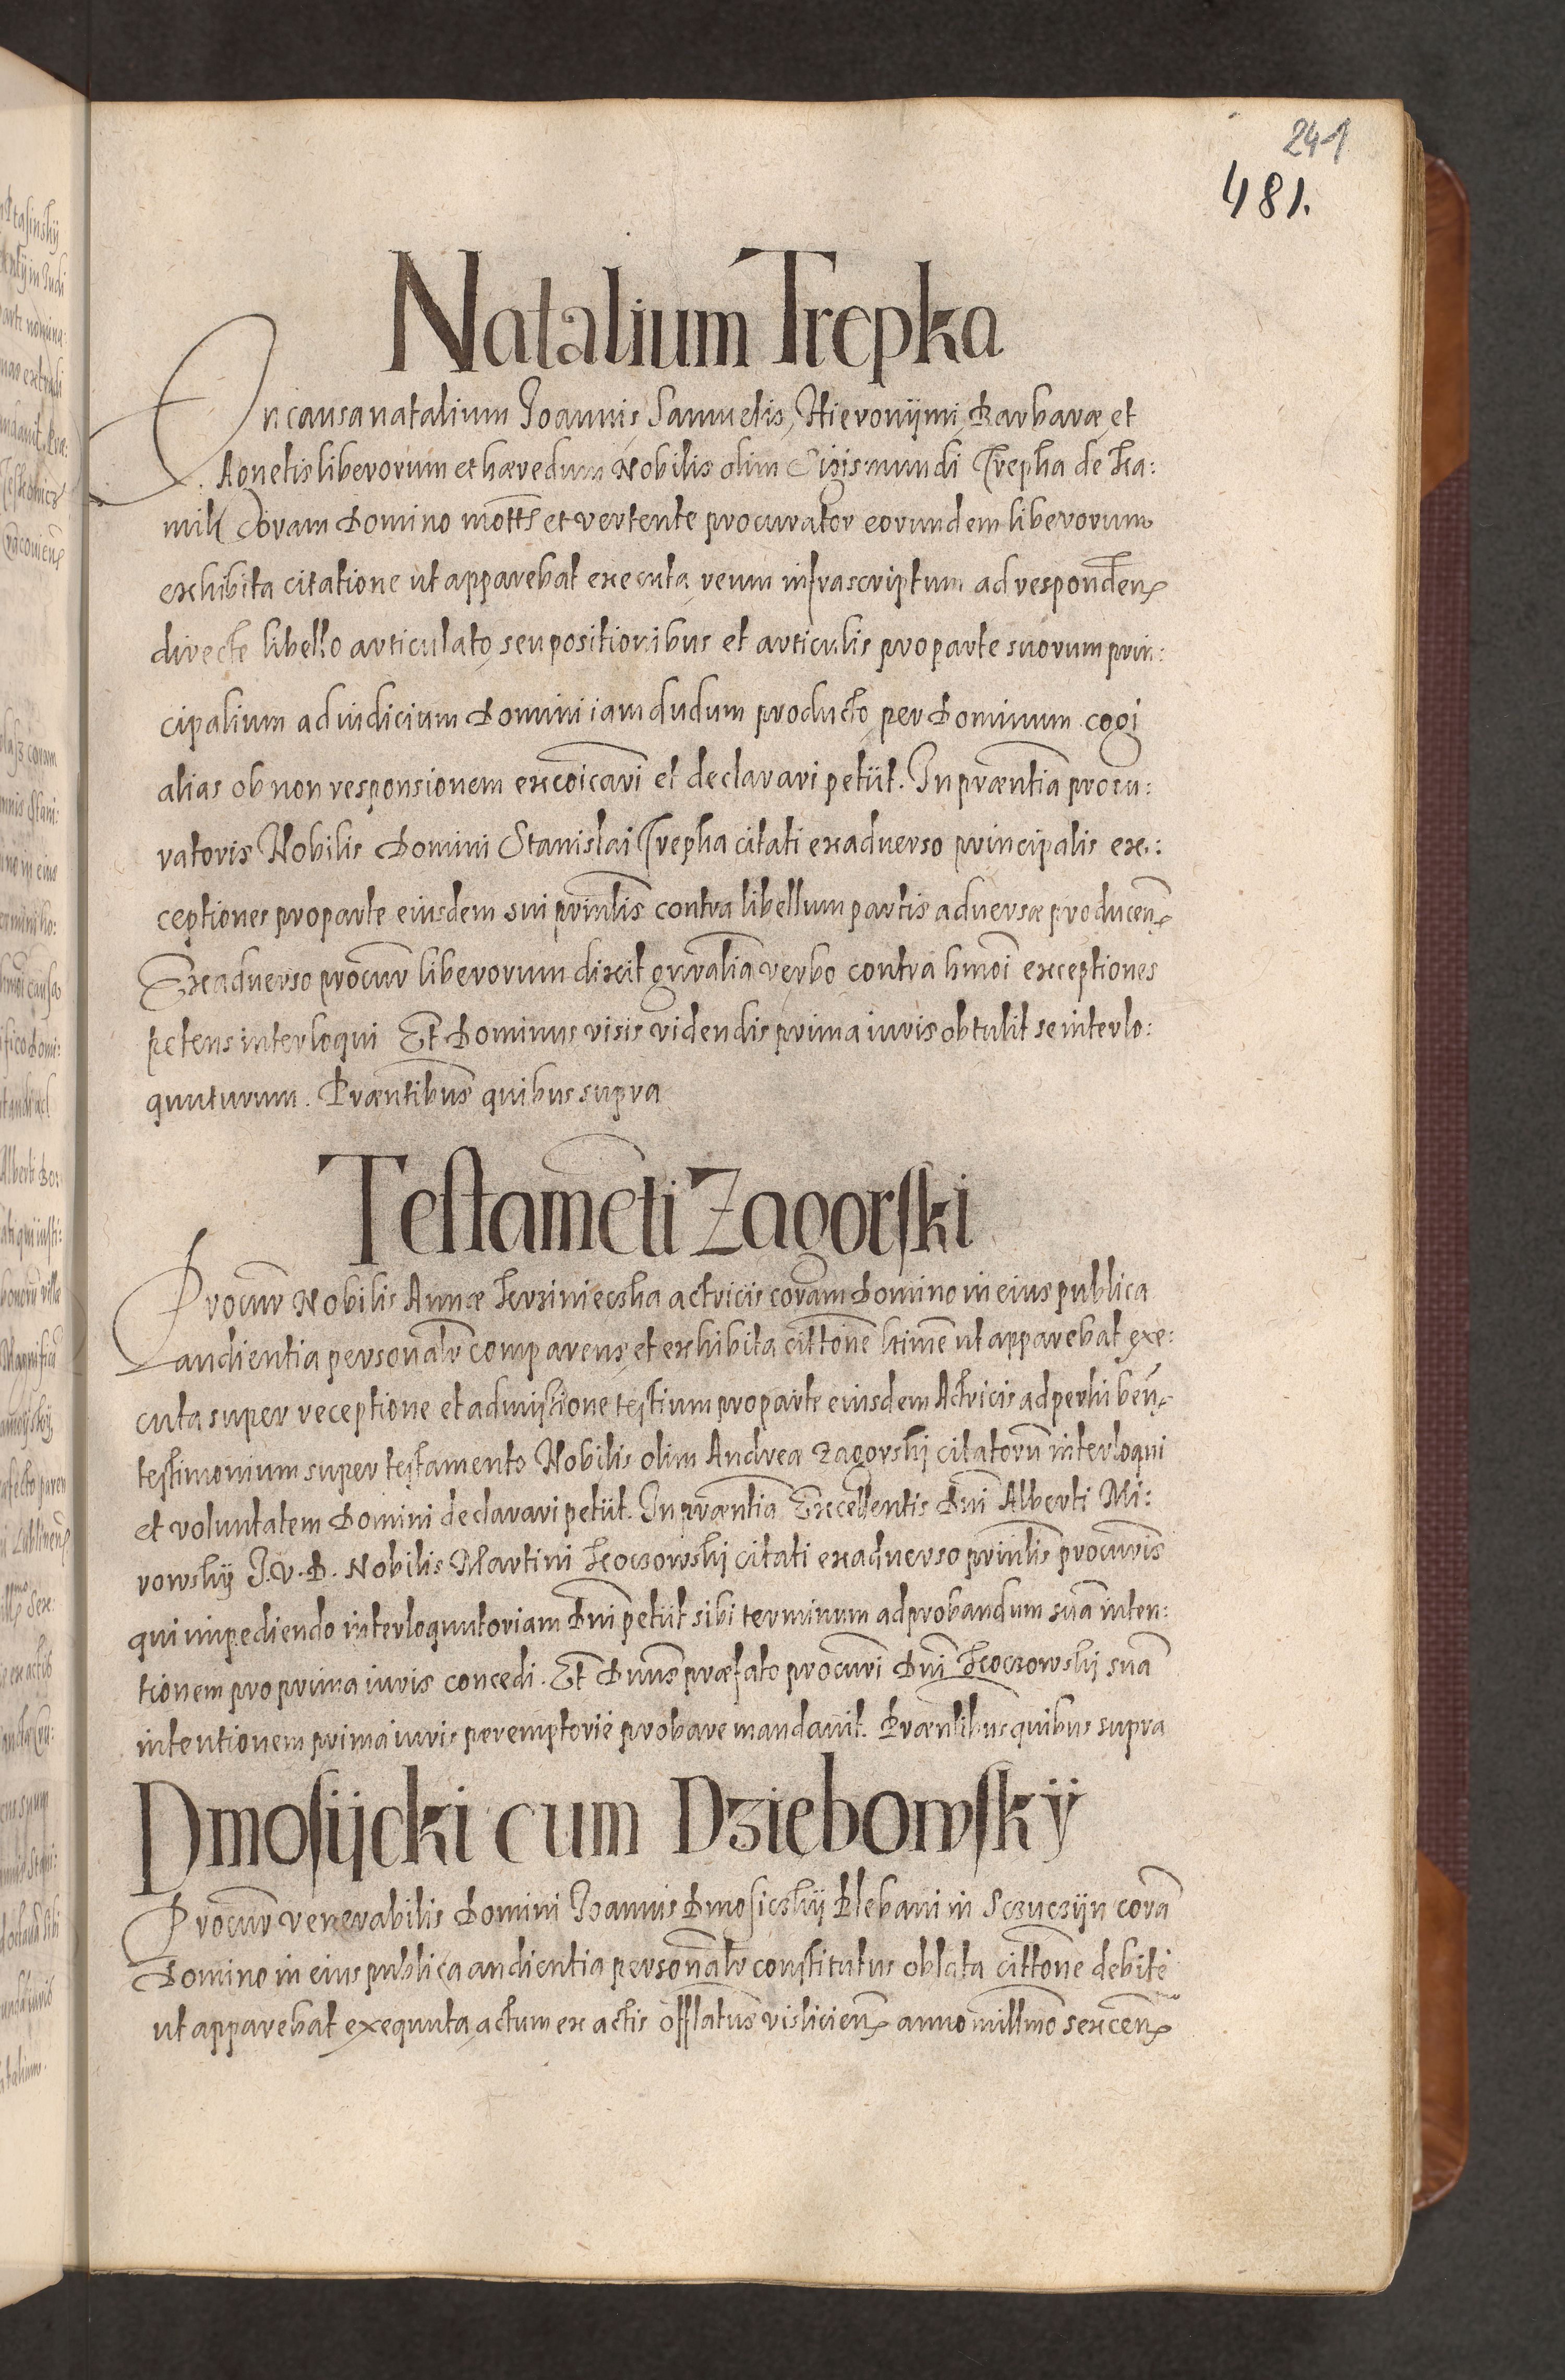 241
481.
Natalium Trepka
In causa natalium Joannis, Samuelis, Hieronÿmi, Barbaræ, et
Agnetis liberorum et hæredum Nobilis olim Sigismundi Trepka de Ka:
mik Coram Domino mott et vertente procurator eorundem liberorum
exhibita citatione ut apparebat executa, reum infrascriptum ad responden
directe libello articulato, seu positionibus et articulis pro parte suorum prin:
cipalium ad iudicium Domini iam dudum producto, per Dominum cogi
alias ob non responsionem excoicari et declarari petiit. In præntia procu:
ratoris Nobilis Domini Stanislai Trepka citati ex adverso principalis ex:
ceptiones pro parte eiusdem sui prinlis contra libellum partis adversæ producen
Ex adverso procur liberorum dixit gnralia verbo contra hmoi exceptiones
petens interloqui Et Dominus visis videndis prima iuris obtulit se interlo:
quuturum. Præntibus quibus supra
Testameti Zagorski
Procur Nobilis Annæ Krziniecka actricis coram Domino in eius publica
audientia personalr comparens, et exhibita cittone ltime ut apparebat exe:
cuta super receptione et admissione testium pro parte eiusdem Actricis ad perhiben
testimonium super testamento Nobilis olim Andreæ Zagorski citatoru interloqui
et voluntatem Domini declarari petiit. In præntia Excellentis Dni Alberti Mi:
rowskÿ J. V. D. Nobilis Martini Koczowski citati ex adverso prinlis procuris
qui impediendo interloquutoriam Dni petiit sibi terminum ad probandum sua inten:
tionem pro prima iuris concedi. Et Dnus præfato procuri Dni Koczowski sua
intentionem prima iuris peremptorie probare mandavit. Præntibus quibus supra
Dmosijcki cum Dziebowskÿ
Procur venerabilis Domini Joannis Dmosickÿ Plebani in Sczuczÿn cora
Domino in eius publica audientia personalr constitutus oblata cittone debite
ut apparebat exequuta, actum ex actis offlatus visliciens anno millmo sexcen